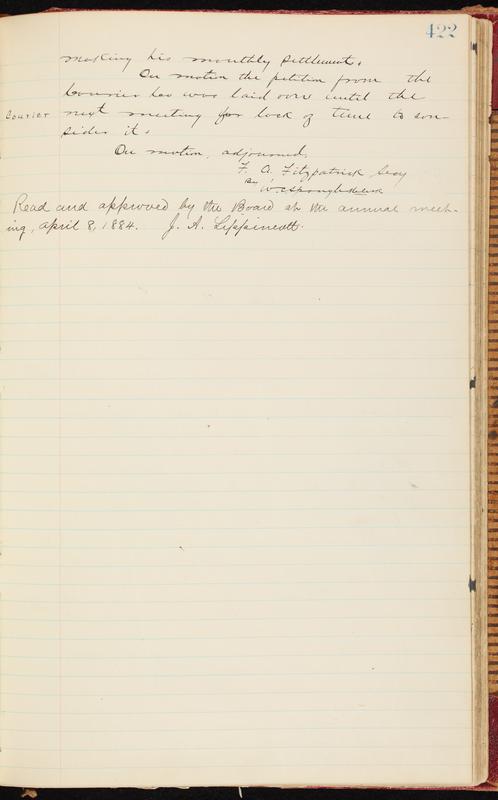 422
making his monthly settlement.
On motion the petition from the
Courier Co was laid over until the
Courier next meeting for lack of time to con-
sider it.
On motion, adjourned.
F. A. Fitzpatrick Secy
By W. C.
Read and approved by the Board at the annual meet-
ing, April 8, 1884. J. A. Lippincott.